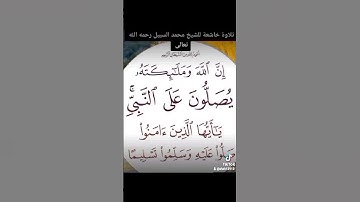 تلاوة خاشعة للشيخ محمد السبيل رحمه الله
تعالى
إِنَّ ٱللَّهَ وَمَلَـٰٓئِكَتَهُۥ
يُصَلُّونَ عَلَى ٱلنَّبِىِّۚ
يَـٰٓأَيُّهَا ٱلَّذِينَ ءَامَنُوا۟
صَلُّوا۟ عَلَيْهِ وَسَلِّمُوا۟ تَسْلِيمًا